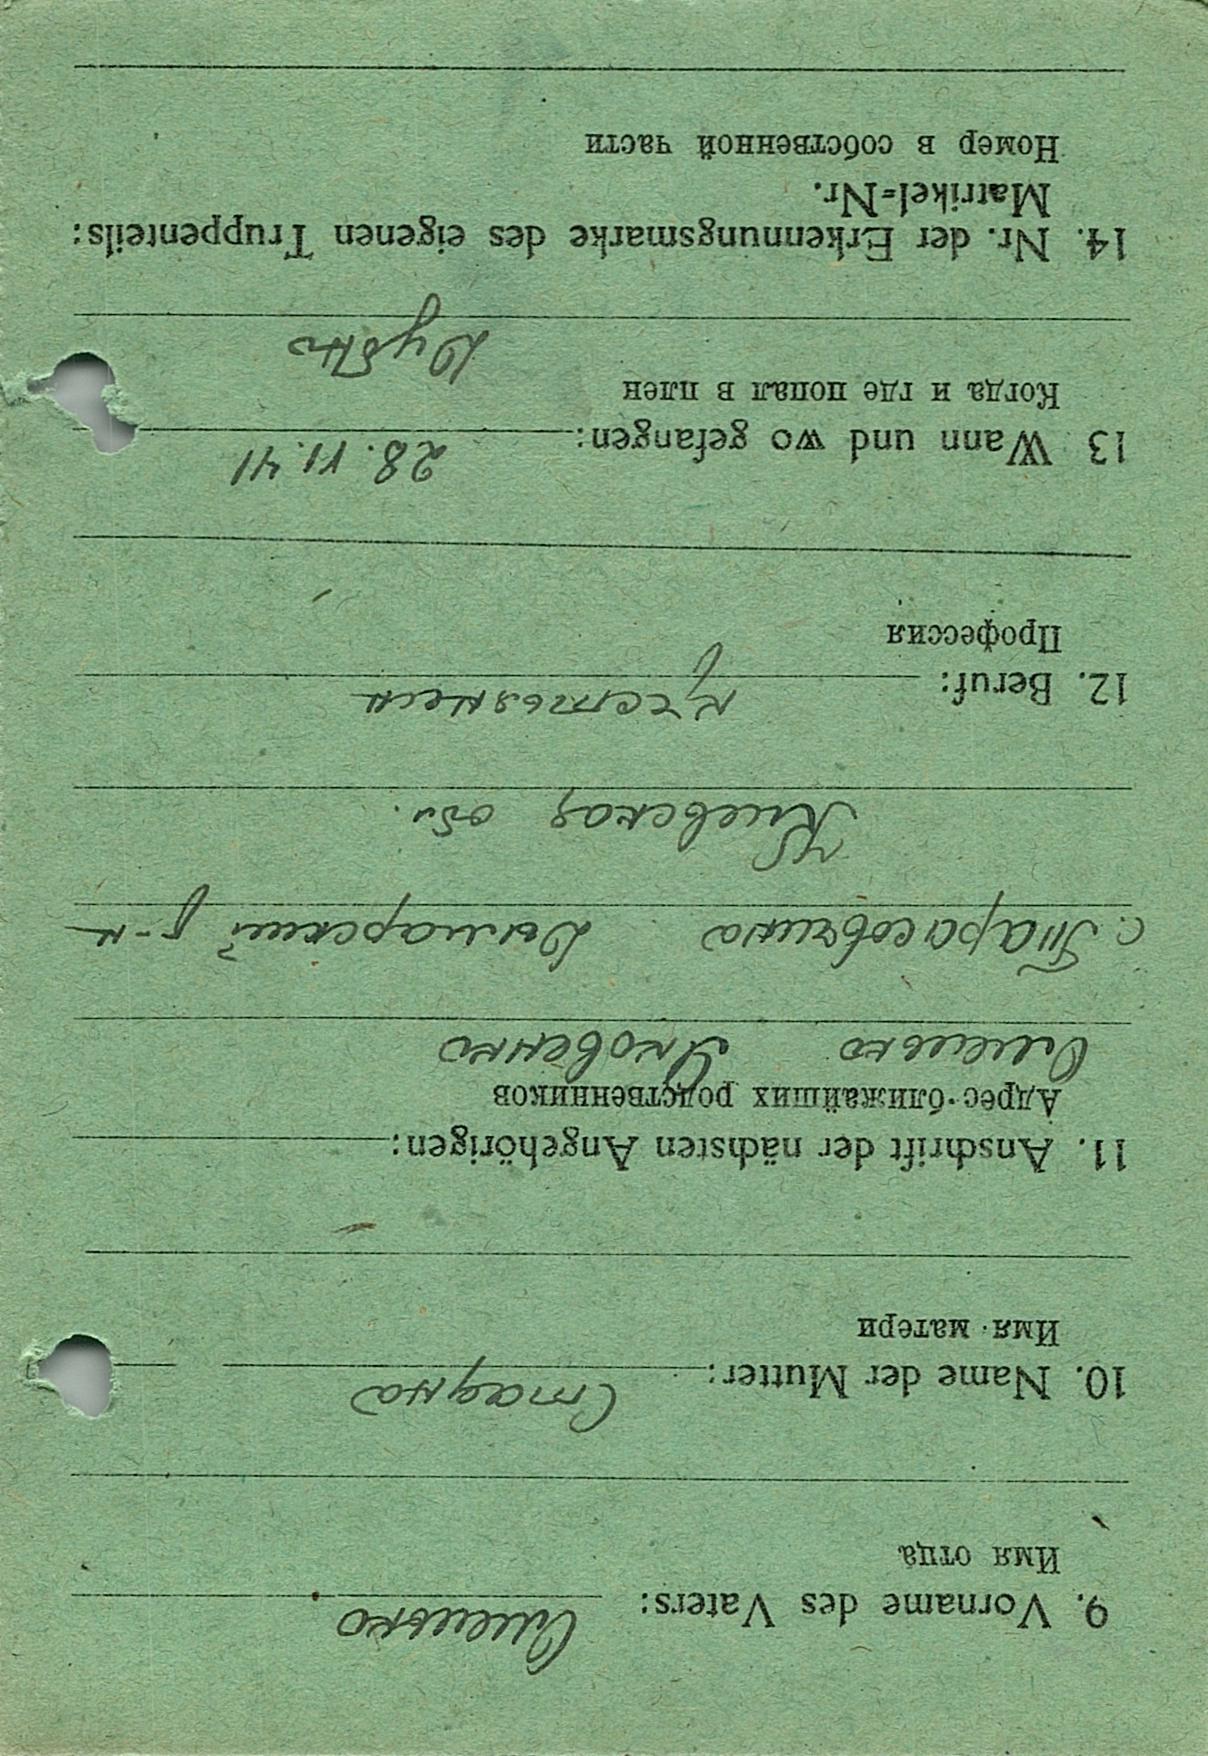 9. Vorname des Vaters: Омелько
Имя отца
10. Name der Mutter:
Имя матери
11. Anschrift der nächsten Angehörigen:
Адрес ближайших родственников
Омелько Яковенко
с. Тарасовщина Дымарский р-н
Киевская обл.
12. Beruf: крестьянин
Профессия
13 Wann und wo gefangen: 28.VI.41
Когда и где попал в плен
Дубно
14. Nr. der Erkennungsmarke des eigenen Truppenteils:
Matrikel=Nr.
Номер в собственной части